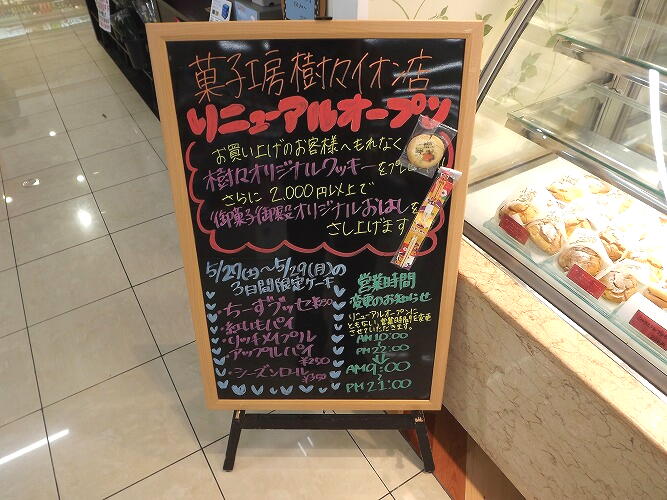 菓子工房樹々イオン店
リニューアルオープン
お買い上げのお客様へもれなく
樹々オリジナルクッキーをプレ
さらに 2.000円以上で
御菓子御殿オリジナルおはしを
さし上げます
5/27(土)〜5/29(月)の
3日間限定ケーキ
・ちーずブッセ
・紅いもパイ
・リッチメイプル
アップルパイ
¥250
・シーズンロール
¥350
営業時間
変更のお知らせ
リニューアルオープンに
ともない、営業時間を変更
させていただきます。
AM10:00
〜
PM22:00
⇓
AM9:00
〜
PM21:00